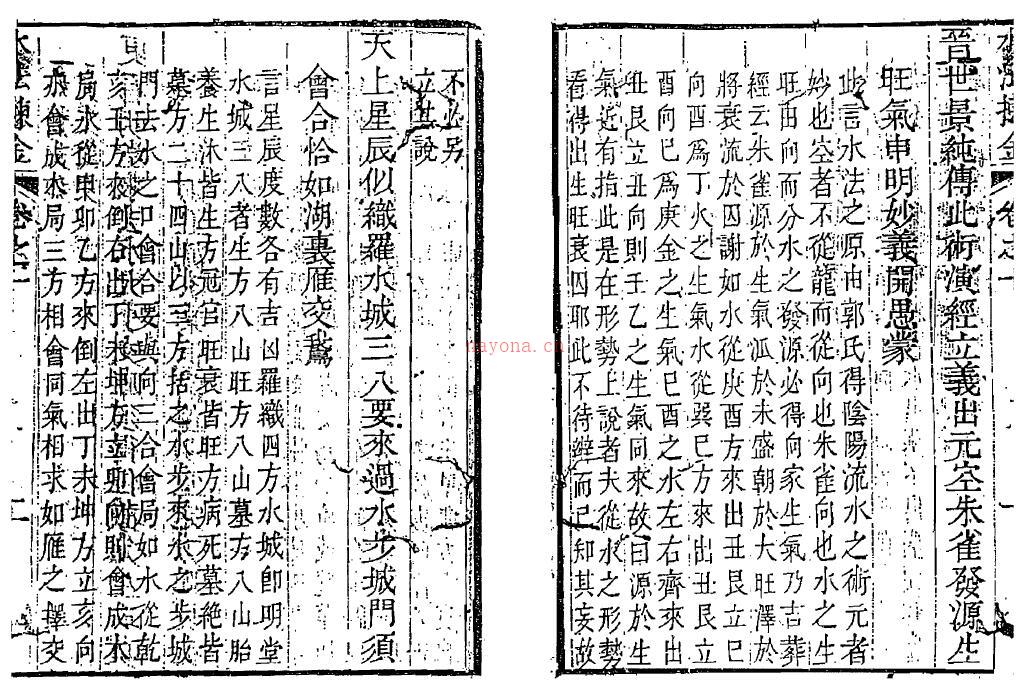 晉世景純傳此術演經立義出元空朱雀發源生
旺氣申明妙義開愚蒙
此言水法之原由郭氏得陰陽流水之術元者
妙也空者不從龍而從向也朱雀向也水之生
旺由向而分水之發源必得向家生氣乃吉葬
經云朱雀源於生氣派於未盛朝於大旺澤於
將衰流於囚謝如水從庚酉方來出丑艮立巳
向酉為丁火之生氣水從巽巳方來出丑艮立
酉向巳為庚金之生氣巳酉之水左右齊來出
丑艮立丑向則壬乙之生氣同來故曰源於生
氣近有指此是在形勢上說者夫從水之形勢
看得出生旺衰囚耶此不待辨而已知其妄故
不必另
立其說
天上星辰似織羅水城三八要來過水步城門須
會合恰如湖裏雁交鶩
言星辰度數各有吉凶羅織四方水城即明堂
水城三八者生方八山旺方八山墓方八山胎
養生沐皆生方冠官旺衰皆旺方病死墓絕皆
墓方二十四山以三方括之水步來水之步城
門去水之口會合要與向三合會局如水從乾
亥壬方來倒右出丁未坤方立卯向則會成木
局水從甲卯乙方來倒左出丁未坤方立亥向
亦會成木局三方相會同氣相求如雁之擇交
卷之一